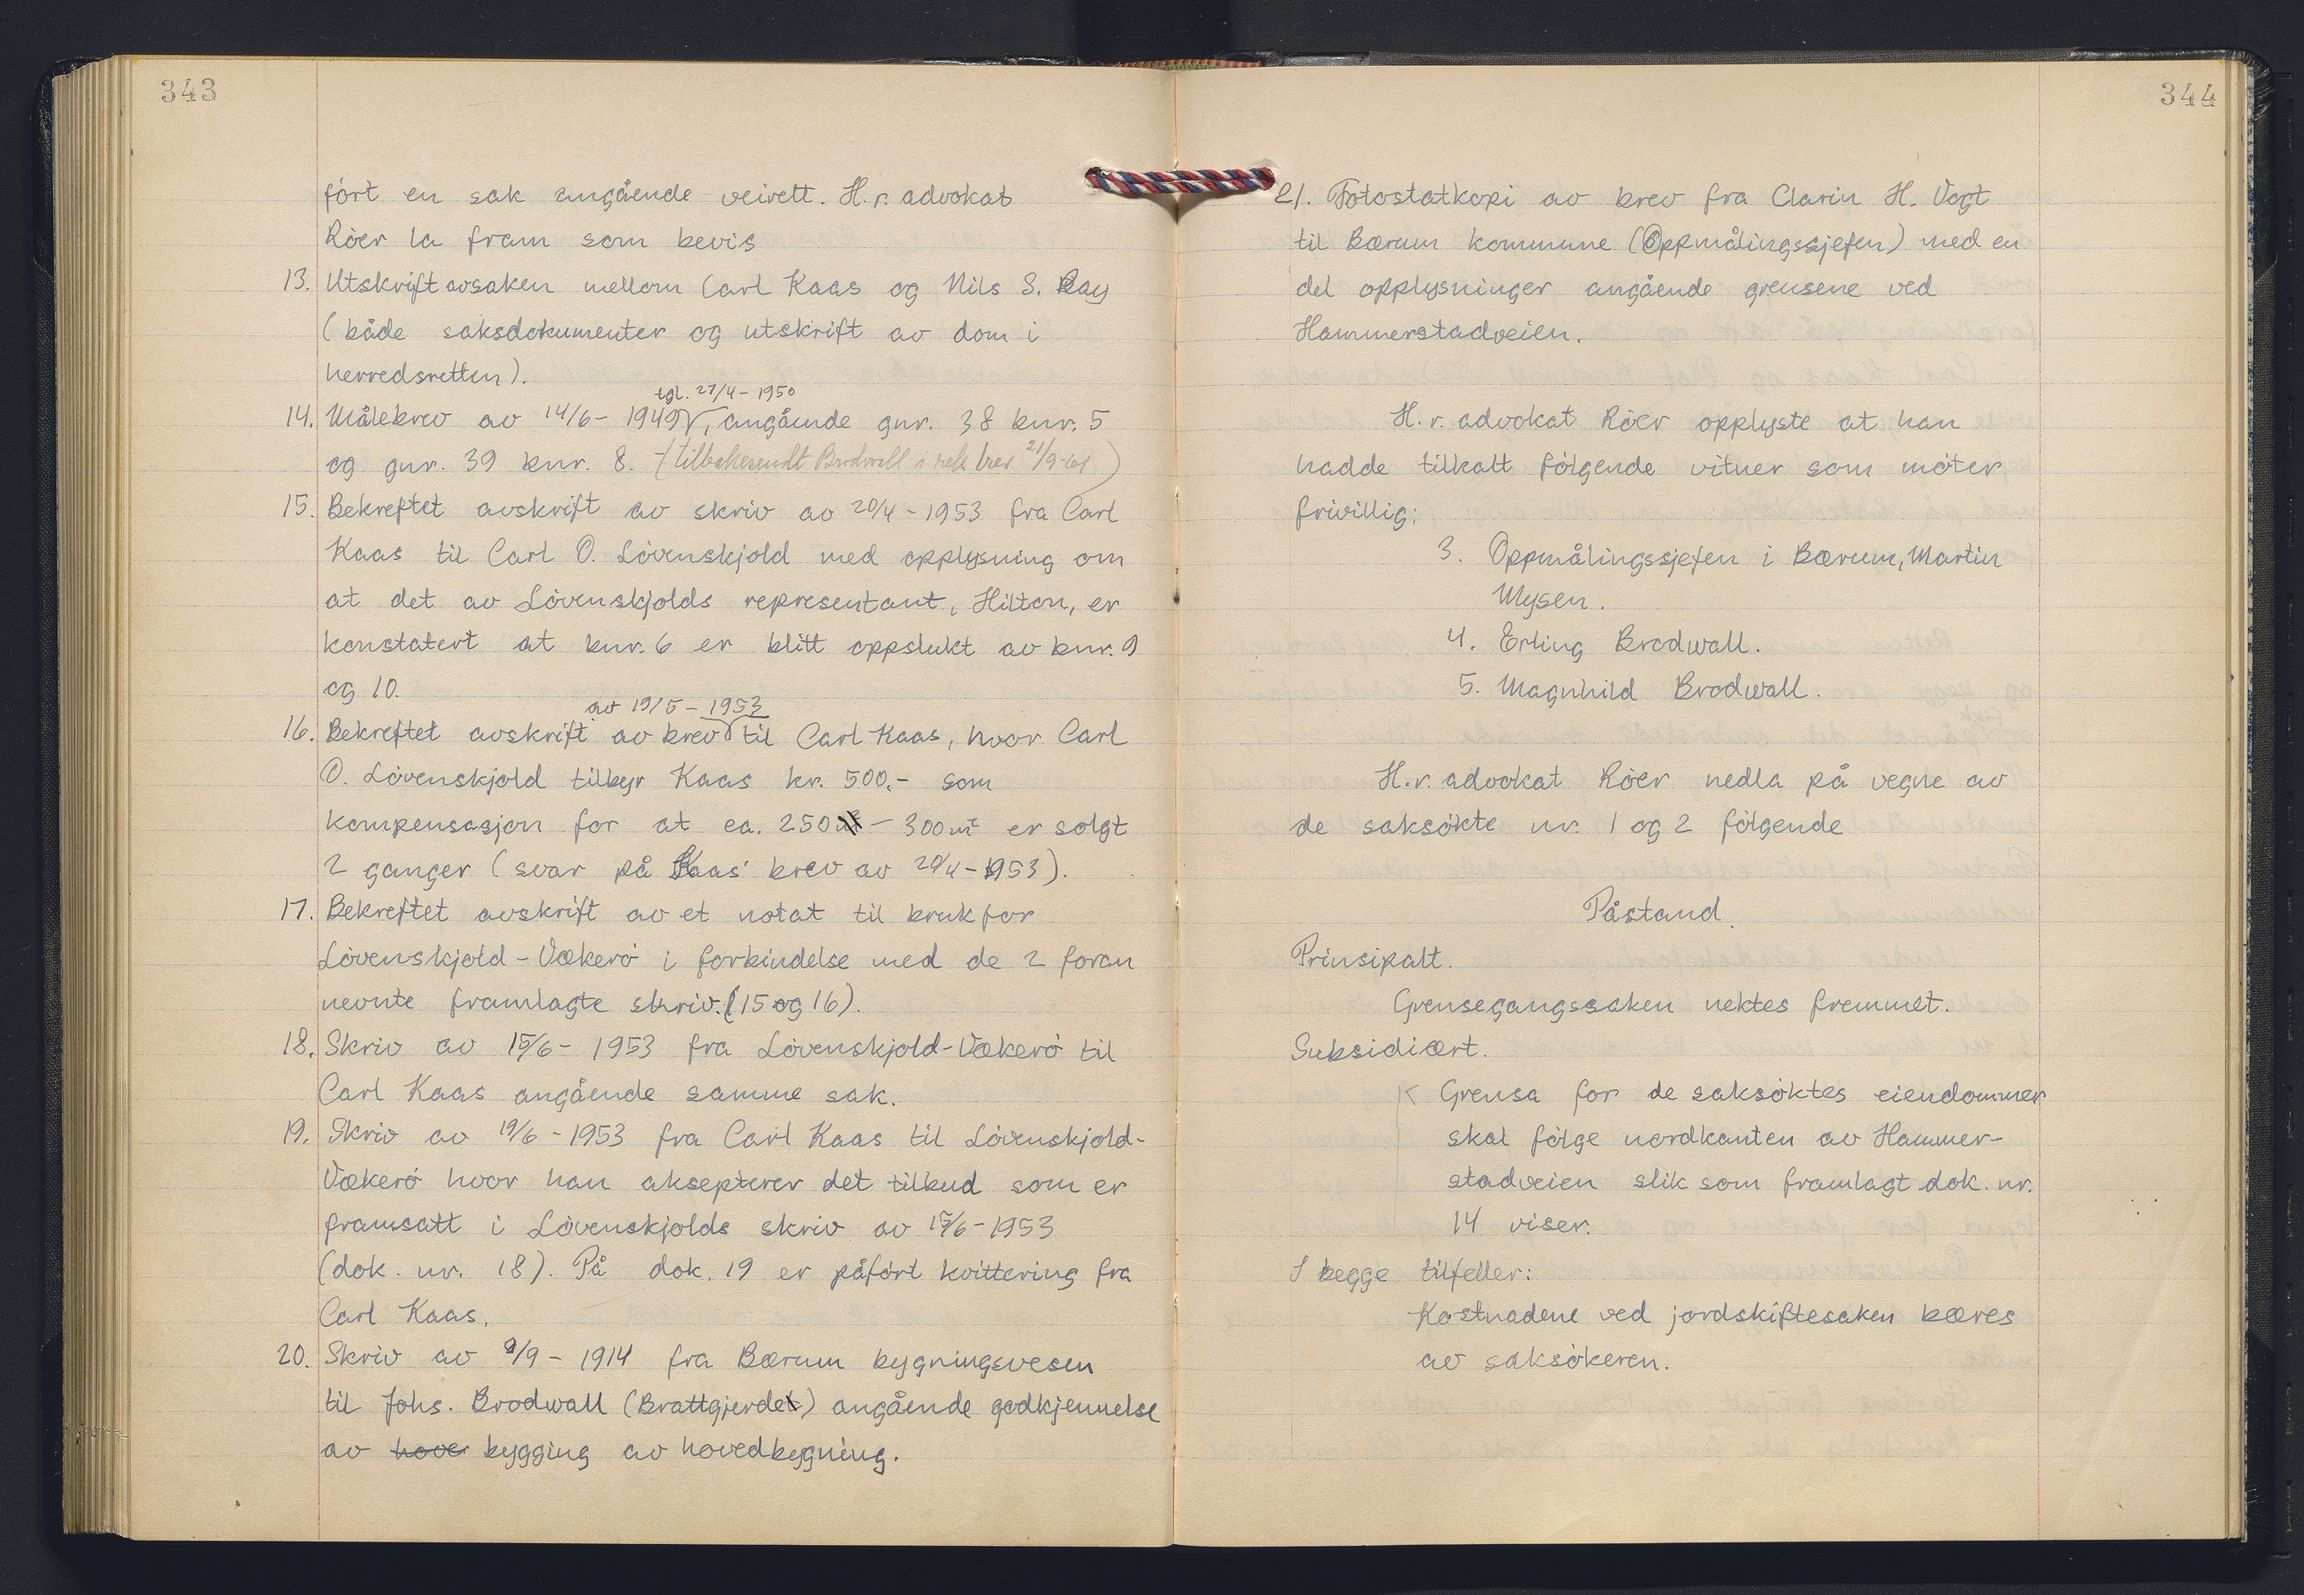 343
ført en sak angående veirett. H.r. advokat
Röer la fram som bevis
13. Utskrift av saken mellom Carl Kaas og Nils S.
(både saksdokumenter og utskrift av dom i
herredsretten).
tgl. 27/4 - 1950
14. Målebrev av 14/6 - 1949, angående gnr. 38 bnr. 5
og gnr. 39 bnr. 8. (tilbakesendt Brodwall i rek brev 21/9-61)
15. Bekreftet avskrift av skriv av 20/4 - 1953 fra Carl
Kaas til Carl O. Lövenskjold med opplysning om
at det av Lövenskjolds representant, Hilton, er
konstatert at bnr. 6 er blitt oppslukt av bnr. 9
og 10.
av 19/5 - 1953
16. Bekreftet avskrift av brev til Carl Kaas, hvor Carl
O. Lövenskjold tilbyr Kaas kr. 500,- som
kompensasjon for at ca. 250 - 300 m² er solgt
2 ganger (svar på Kaas' brev av 20/4 - 1953).
17. Bekreftet avskrift av et notat til bruk for
Lövenskjold - Vækerö i forbindelse med de 2 foran
nevnte framlagte skriv. (15 og 16).
18. Skriv av 15/6 - 1953 fra Lövenskjold-Vækerö til
Carl Kaas angående samme sak.
19. Skriv av 19/6 - 1953 fra Carl Kaas til Lövenskjold-
Vækerö hvor han aksepterer det tilbud som er
framsatt i Lövenskjolds skriv av 15/6 - 1953
(dok. nr. 18). På dok. 19 er påfört kvittering fra
Carl Kaas.
20. Skriv av 9/9 - 1914 fra Bærum bygningsvesen
til Johs. Brodwall (Brattgjerde) angående godkjennelse
av hove bygging av hovedbygning.
344
21. Fotostatkopi av brev fra Clarin H. Vogt
til Bærum kommune (Oppmålingssjefen) med en
del opplysninger angående grensene ved
Hammerstadveien.
H.r. advokat Röer opplyste at han
hadde tilkalt fölgende vitner som möter
frivillig:
3. Oppmålingssjefen i Bærum, Martin
Mysen.
4. Erling Brodwall.
5. Magnhild Brodwall.
H.r. advokat Röer nedla på vegne av
de saksökte nr. 1 og 2 fölgende
Påstand.
Prinsipalt.
Grensegangssaken nektes fremmet.
Subsidiært.
Grensa for de saksöktes eiendommer
skal fölge nordkanten av Hammer-
stadveien slik som framlagt dok. nr.
14 viser.
I begge tilfeller:
Kostnadene ved jordskiftesaken bæres
av saksökeren.